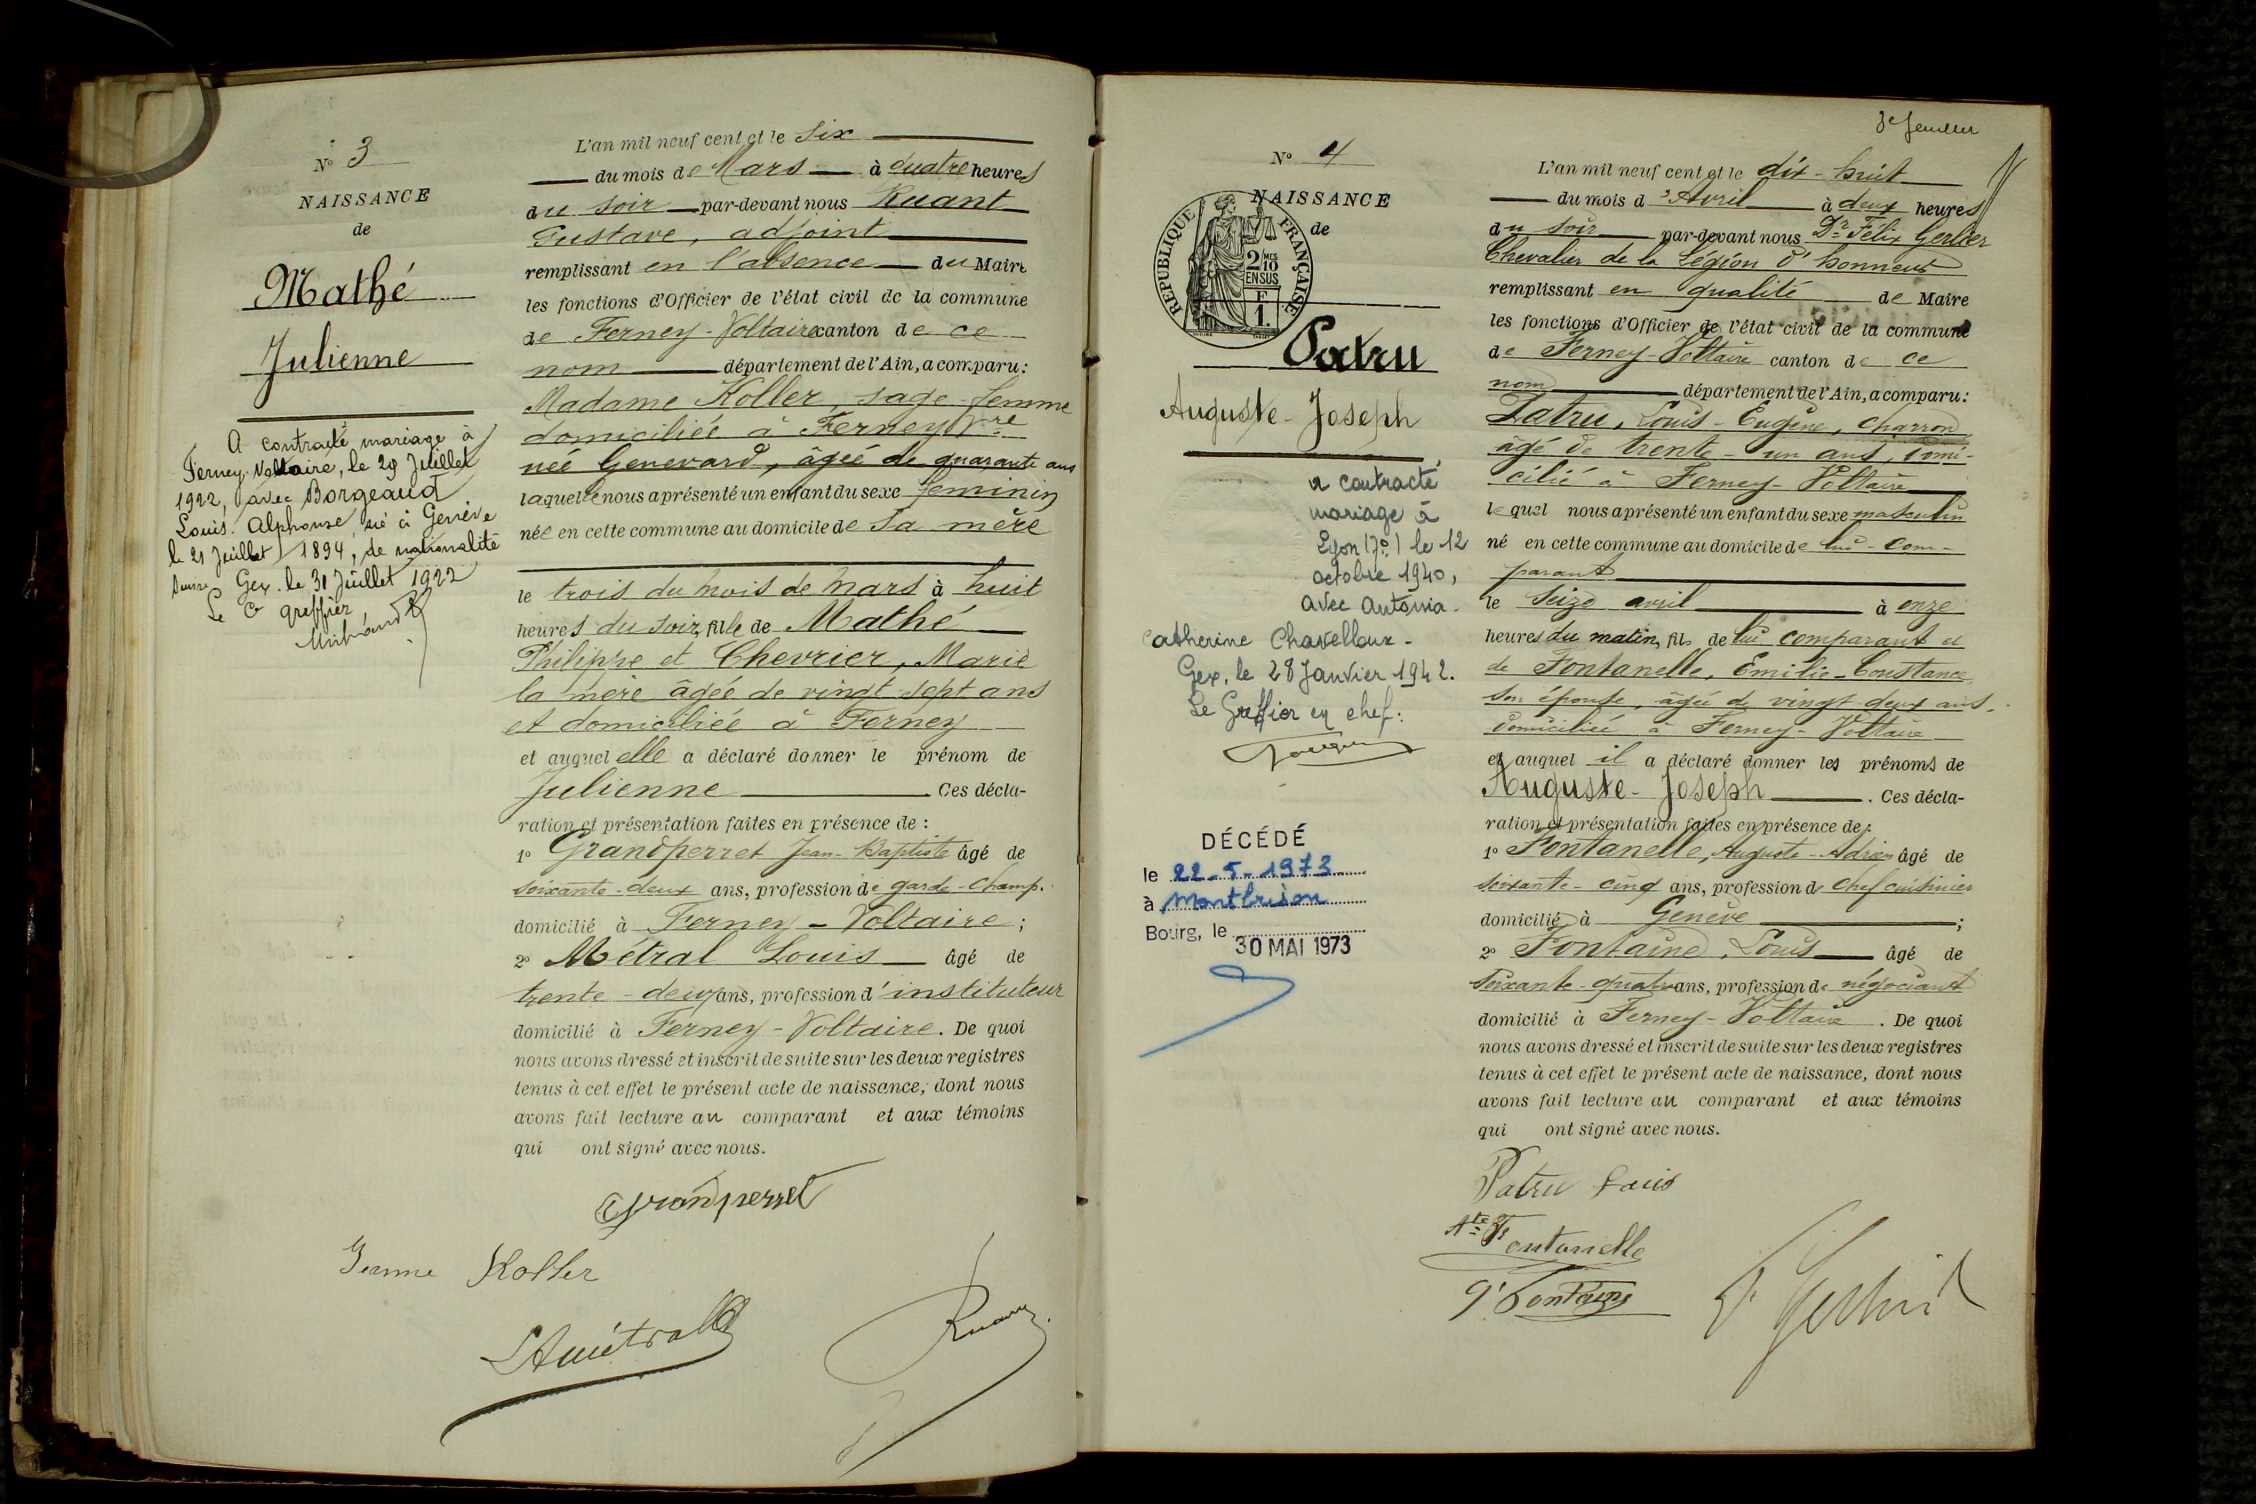 N° 3
NAISSANCE
de
Mathé
Julienne
A contracté mariage à
Ferney-Voltaire, le 29 Juillet
1922, avec Borgeaud
Louis Alphonse né à Genève
le 21 Juillet 1894, de nationalité
suisse. Gex. le 31 Juillet 1922
Le Cs greffier
L'an mil neuf cent et le six
du mois de Mars à quatre heures
du soir par-devant nous Ruant
Gustave, adjoint
remplissant en l'absence du Maire
les fonctions d'Officier de l'état civil de la commune
de Ferney-Voltaire canton de ce
nom département de l'Ain, a comparu:
Madame Koller, sage-femme
domiciliée à Ferney Vre
née Genevard, âgée de quarante ans
laquelle nous a présenté un enfant du sexe féminin
née en cette commune au domicile de sa mère
le trois du mois de mars à huit
heures du soir, fille de Mathé
Philippe et Chevrier, Marie
la mère âgée de vingt-sept ans
et domiciliée à Ferney
et auquel elle a déclaré donner le prénom de
Julienne Ces décla-
ration et présentation faites en présence de :
1° Grandperret Jean-Baptiste âgé de
soixante-deux ans, profession de garde-champ.
domicilié à Ferney-Voltaire;
2° Métral Louis âgé de
trente-deux ans, profession d'instituteur
domicilié à Ferney-Voltaire. De quoi
nous avons dressé et inscrit de suite sur les deux registres
tenus à cet effet le présent acte de naissance, dont nous
avons fait lecture au comparant et aux témoins
qui ont signé avec nous.
Grandperret
Jeanne Koller
LMétral
Ruant
3e feuillet
N° 4
NAISSANCE
de
RÉPUBLIQUE FRANÇAISE
2/10 MES
EN SUS
F
1.
Patru
Auguste-Joseph
a contracté
mariage à
Lyon (7e) le 12
octobre 1940,
avec Antonia-
Catherine Chavelloux-
Gex, le 28 Janvier 1942.
Le Greffier en chef:
DÉCÉDÉ
le 22-5-1973
à Montbrison
Bourg, le
30 MAI 1973
L'an mil neuf cent et le dix-huit
du mois d'Avril à deux heures
du soir par-devant nous Dr Félix Gerlier
Chevalier de la Légion d'honneur
remplissant en qualité de Maire
les fonctions d'Officier de l'état civil de la commune
de Ferney-Voltaire canton de ce
nom département de l'Ain, a comparu:
Patru, Louis-Eugène, charron
âgé de trente-un ans, domi-
cilié à Ferney-Voltaire
lequel nous a présenté un enfant du sexe masculin
né en cette commune au domicile de lui-com-
parant
le seize avril à onze
heures du matin, fils de lui comparant et
de Fontanelle, Emilie-Constance
son épouse, âgée de vingt-deux ans,
domiciliée à Ferney-Voltaire
et auquel il a déclaré donner les prénoms de
Auguste-Joseph . Ces décla-
ration et présentation faites en présence de:
1° Fontanelle, Auguste-Adrien âgé de
soixante-cinq ans, profession de chef cuisinier
domicilié à Genève ;
2° Fontaine, Louis âgé de
soixante-quatre ans, profession de négociant
domicilié à Ferney-Voltaire . De quoi
nous avons dressé et inscrit de suite sur les deux registres
tenus à cet effet le présent acte de naissance, dont nous
avons fait lecture au comparant et aux témoins
qui ont signé avec nous.
Patru Louis
Ate Fontanelle
Fontaine
F. Gerlier